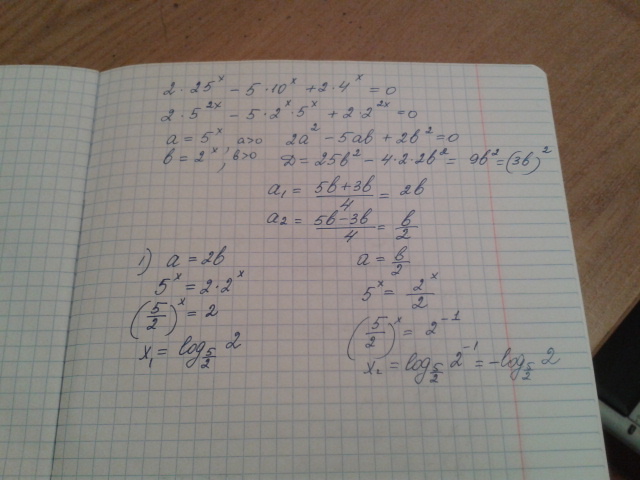 2 · 25^x − 5 · 10^x + 2 · 4^x = 0
2 · 5^{2x} − 5 · 2^x · 5^x + 2 · 2^{2x} = 0
a = 5^x, a>0 2a^2 − 5ab + 2b^2 = 0
b = 2^x, b>0 D = 25b^2 − 4·2·2b^2 = 9b^2 = (3b)^2
a_1 = \frac{5b+3b}{4} = 2b
a_2 = \frac{5b−3b}{4} = \frac{b}{2}
1) a = 2b
5^x = 2 · 2^x
(\frac{5}{2})^x = 2
x_1 = log_{\frac{5}{2}} 2
a = \frac{b}{2}
5^x = \frac{2^x}{2}
(\frac{5}{2})^x = 2^{−1}
x_2 = log_{\frac{5}{2}} 2^{−1} = −log_{\frac{5}{2}} 2